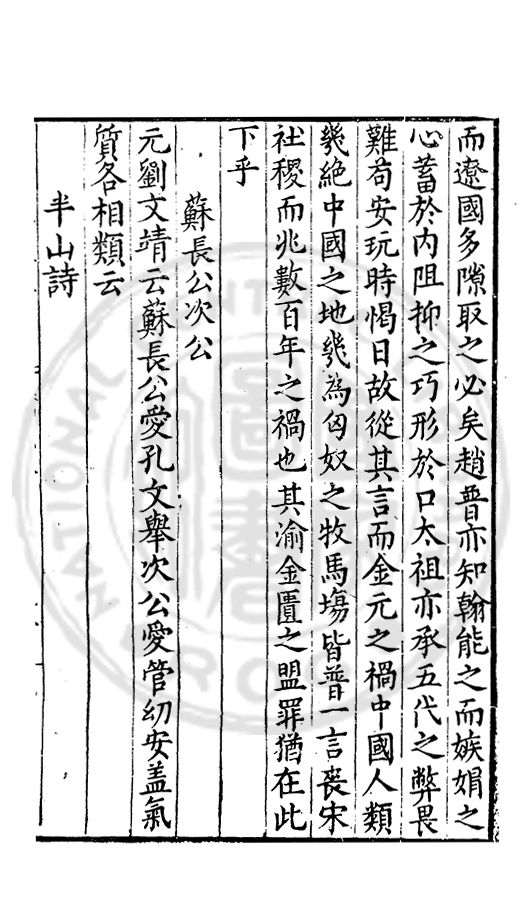 而遼國多隙取之必矣趙普亦知翰能之而嫉娼之
心蓄於內阻抑之巧形於口太祖亦承五代之弊畏
難苟安玩時愒日故從其言而金元之禍中國人類
幾絕中國之地幾為匈奴之牧馬塲皆普一言喪宋
社稷而兆數百年之禍也其渝金匱之盟罪猶在此
下乎
蘇長公次公
元劉文靖云蘇長公愛孔文舉次公愛管幼安盖氣
質各相類云
半山詩